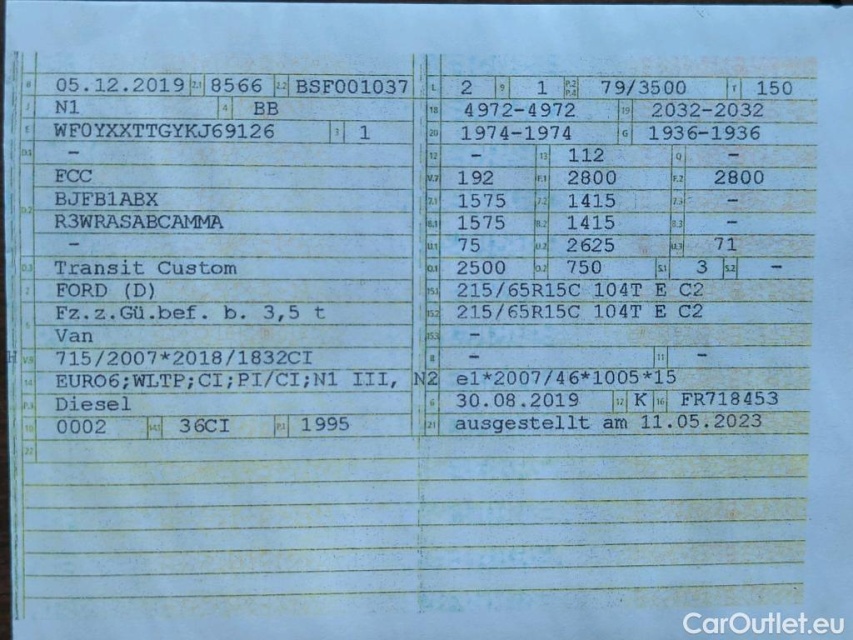 B 05.12.2019 2.1 8566 2.2 BSF001037
J N1 4 BB
E WF0YXXTTGYKJ69126 3 1
D.1 -
FCC
D.2 BJFB1ABX
R3WRASABCAMMA
-
D.3 Transit Custom
2 FORD (D)
5 Fz.z.Gü.bef. b. 3,5 t
Van
V.9 715/2007*2018/1832CI
14 EURO6;WLTP;CI;PI/CI;N1 III, N2
P.3 Diesel
10 0002 14.1 36CI P.1 1995
22
L 2 9 1 P.2 P.4 79/3500 T 150
18 4972-4972 19 2032-2032
20 1974-1974 G 1936-1936
12 - 13 112 Q -
V.7 192 F.1 2800 F.2 2800
7.1 1575 7.2 1415 7.3 -
8.1 1575 8.2 1415 8.3 -
U.1 75 U.2 2625 U.3 71
O.1 2500 O.2 750 S.1 3 S.2 -
15.1 215/65R15C 104T E C2
15.2 215/65R15C 104T E C2
15.3 -
R - 11 -
K e1*2007/46*1005*15
6 30.08.2019 17 K 16 FR718453
21 ausgestellt am 11.05.2023
CarOutlet.eu